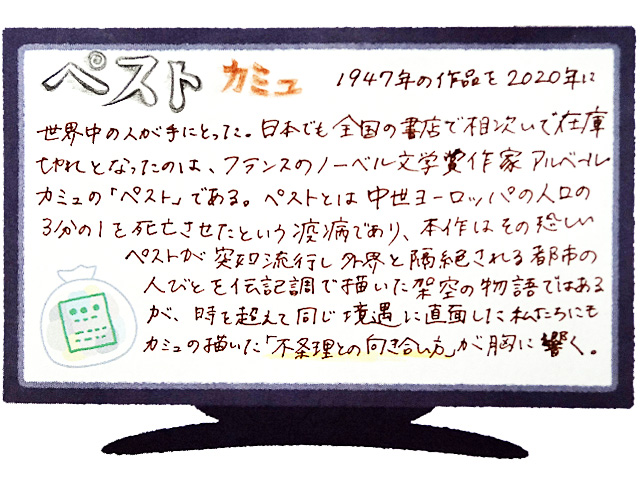 ペスト カミュ 1947年の作品を2020年に
世界中の人が手にとった。日本でも全国の書店で相次いで在庫
切れとなったのは、フランスのノーベル文学賞作家アルベール
カミュの「ペスト」である。ペストとは中世ヨーロッパの人口の
3分の1を死亡させたという疫病であり、本作はその恐しい
ペストが突如流行し外界と隔絶される都市の
人びとを伝記調で描いた架空の物語ではある
が、時を超えて同じ境遇に直面した私たちにも
カミュの描いた「不条理との向き合い方」が胸に響く。